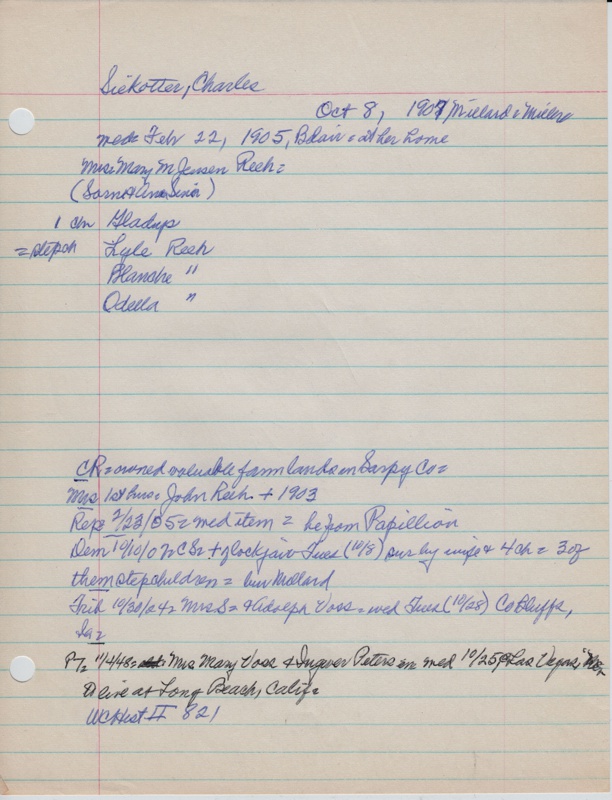 Siekotter, Charles
Oct 8, 1907, Millard = Millard
med= Feb 22, 1905, Blair = at her home
Mrs= Mary M Jensen Reeh=
(Soren & Ana Senior)
1 ch Gladys
= stepch Lyle Reeh
Blanche "
Odella "
CR = owned valuable farm lands in Sarpy Co=
Mrs 1st hus= John Reeh + 1903
Rep= 2/23/05= med item = he from Papillion
Dem 10/10/07= CS= + of lockjaw Tues (10/8) sur by wife & 4 ch = 3 of
them stepchildren = bur Millard
Trib 10/30/24= Mrs S= & Adolph Voss = med Tues (10/28) Co Bluffs,
Ia=
PT= 11/4/48= Mrs Mary Voss & Ingver Peters med 10/25 @ Las Vegas,
live at Long Beach, Calif=
WCHist II 821